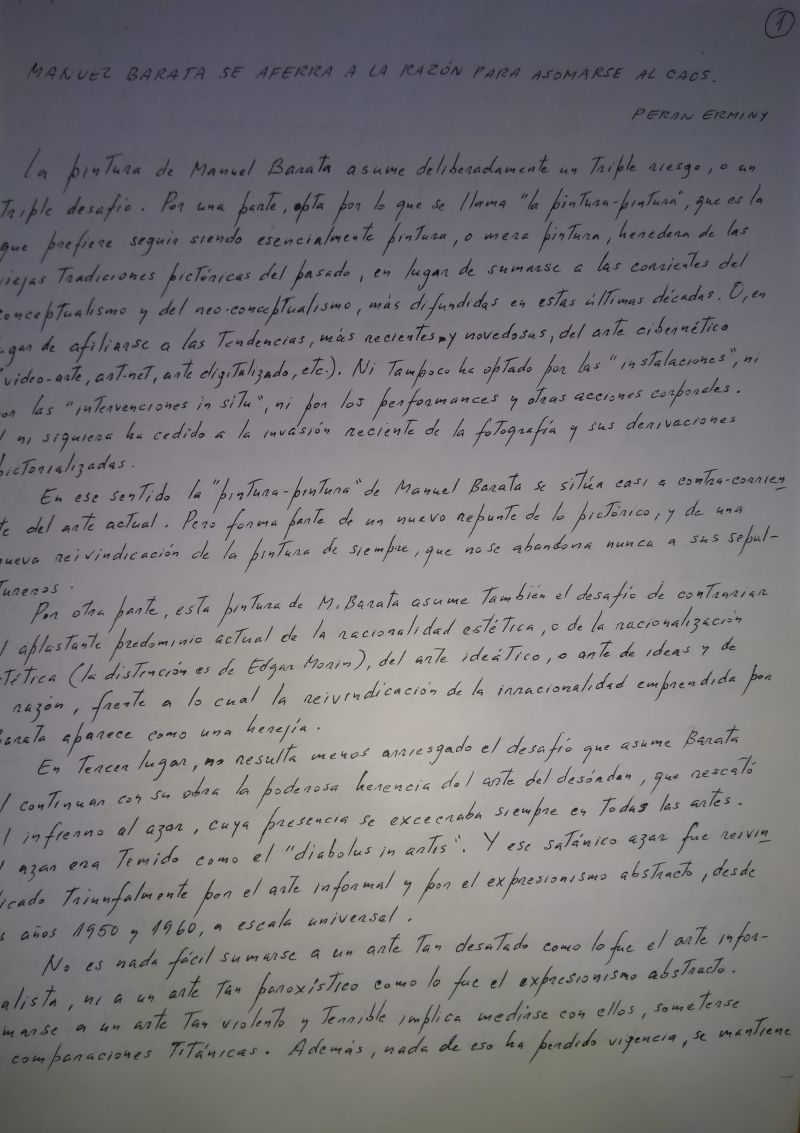 1
MANUEL BARATA SE AFERRA A LA RAZÓN PARA ASOMARSE AL CAOS.
PERAN ERMINY
La pintura de Manuel Barata asume deliberadamente un Triple riesgo, o un
Triple desafío. Por una parte, opta por lo que se llama "la pintura-pintura", que es la
que prefiere seguir siendo esencialmente pintura, o mera pintura, heredera de las
viejas Tradiciones pictóricas del pasado, en lugar de sumarse a las corrientes del
conceptualismo y del neo-conceptualismo, más difundidas en estas últimas décadas. O, en
ugar de afiliarse a las Tendencias, más recientes y novedosas, del arte cibernético
video-arte, art-net, arte digitalizado, etc.). Ni Tampoco ha optado por las "instalaciones", ni
or las "intervenciones in situ", ni por los performances y otras acciones corporales.
ni siquiera ha cedido a la invasión reciente de la fotografía y sus derivaciones
pictorializadas.
En ese sentido la "pintura-pintura" de Manuel Barata se sitúa casi a contra-corrien
te del arte actual. Pero forma parte de un nuevo repunte de lo pictórico, y de una
nueva reivindicación de la pintura de siempre, que no se abandona nunca a sus sepul-
Tureros.
Por otra parte, esta pintura de M. Barata asume También el desafío de contrariar
l aplastante predominio actual de la racionalidad estética, o de la racionalización
tética (la distinción es de Edgar Morin), del arte ideático, o arte de ideas y de
razón, frente a lo cual la reivindicación de la irracionalidad emprendida por
Barata aparece como una herejía.
En Tercer lugar, no resulta menos arriesgado el desafío que asume Barata
l continuar con su obra la poderosa herencia del arte del desórden, que rescató
l infierno al azar, cuya presencia se excecraba siempre en Todas las artes.
l azar era Temido como el "diabolus in artis". Y ese satánico azar fue reivin
icado Triunfalmente por el arte informal y por el expresionismo abstracto, desde
s años 1950 y 1960, a escala universal.
No es nada fácil sumarse a un arte Tan desatado como lo fue el arte infor-
alista, ni a un arte Tan paroxístico como lo fue el expresionismo abstracto.
marse a un arte Tan violento y Terrible implica medirse con ellos, someterse
comparaciones Titánicas. Además, nada de eso ha perdido vigencia, se mantiene